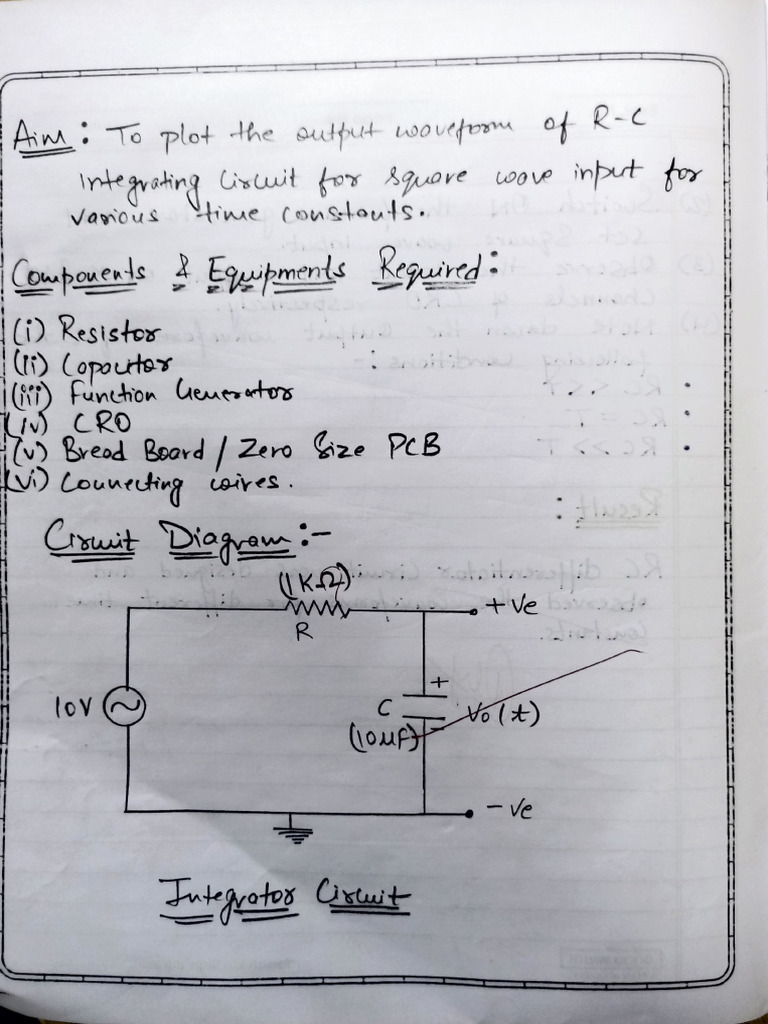 Aim : To plot the output waveform of R-C
Integrating Circuit for square wave input for
various time constants.
Components & Equipments Required :
(i) Resistor
(ii) Capacitor
(iii) Function Generator
(iv) CRO
(v) Bread Board / Zero Size PCB
(vi) Connecting wires.
Circuit Diagram :-
(1KΩ)
R
+ve
10V
+
C
(10µF)
Vo(t)
-ve
Integrator Circuit